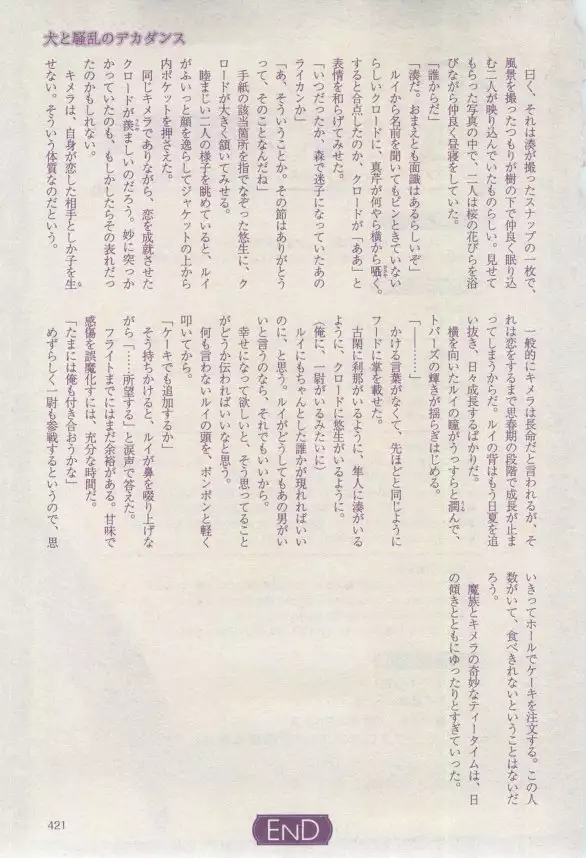 犬と騒乱のデカダンス
曰く、それは湊が撮ったスナップの一枚で、
風景を撮ったつもりが樹の下で仲良く眠り込
む二人が映り込んでいたものらしい。見せて
もらった写真の中で、二人は桜の花びらを浴
びながら仲良く昼寝をしていた。
「誰からだ」
「湊だ。おまえとも面識はあるらしいぞ」
ルイから名前を聞いてもピンときていない
らしいクロードに、真芹が何やら横から囁く。
すると合点したのか、クロードが「ああ」と
表情を和らげてみせた。
「いつだったか、森で迷子になっていたあの
ライカンか」
「あ、そういうことか。その節はありがとう
って、そのことなんだね」
手紙の該当箇所を指でなぞった悠生に、ク
ロードが大きく頷いてみせる。
睦まじい二人の様子を眺めていると、ルイ
がふいっと顔を逸らしてジャケットの上から
内ポケットを押さえた。
同じキメラでありながら、恋を成就させた
クロードが羨ましいのだろう。妙に突っか
かっていたのも、もしかしたらその表れだっ
たのかもしれない。
キメラは、自身が恋した相手としか子を生
せない。そういう体質なのだという。
一般的にキメラは長命だと言われるが、そ
れは恋をするまで思春期の段階で成長が止ま
ってしまうからだ。ルイの背はもう日夏を追
い抜き、日々成長するばかりだ。
横を向いたルイの瞳がうっすらと潤んで、
トパーズの輝きが揺らぎはじめる。
「―――……」
かける言葉がなくて、先ほどと同じように
フードに掌を載せた。
古閑に刹那がいるように、隼人に湊がいる
ように、クロードに悠生がいるように。
（俺に、一尉がいるみたいに）
ルイにもちゃんとした誰かが現れればいい
のに、と思う。ルイがどうしてもあの男がい
いと言うのなら、それでもいいから。
幸せになって欲しいと、そう思ってること
がどうか伝わればいいなと思う。
何も言わないルイの頭を、ポンポンと軽く
叩いてから。
「ケーキでも追加するか」
そう持ちかけると、ルイが鼻を啜り上げな
がら「……所望する」と涙声で答えた。
フライトまでにはまだ余裕がある。甘味で
感傷を誤魔化すには、充分な時間だ。
「たまには俺も付き合おうかな」
めずらしく一尉も参戦するというので、思
いきってホールでケーキを注文する。この人
数がいて、食べきれないということはないだ
ろう。
魔族とキメラの奇妙なティータイムは、日
の傾きとともにゆったりとすぎていった。
END
421